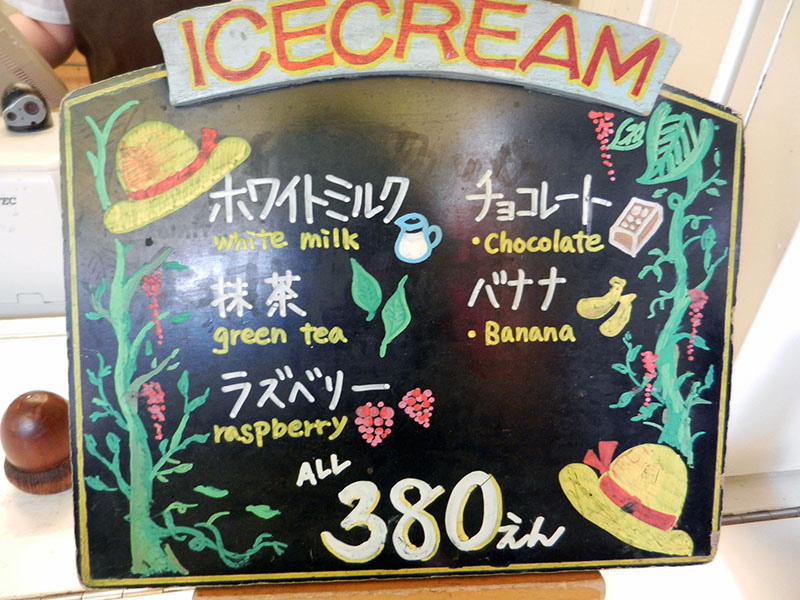 ICECREAM
ホワイトミルク
white milk
抹茶
green tea
ラズベリー
raspberry
チョコレート
・Chocolate
バナナ
・Banana
ALL
380えん
TEC